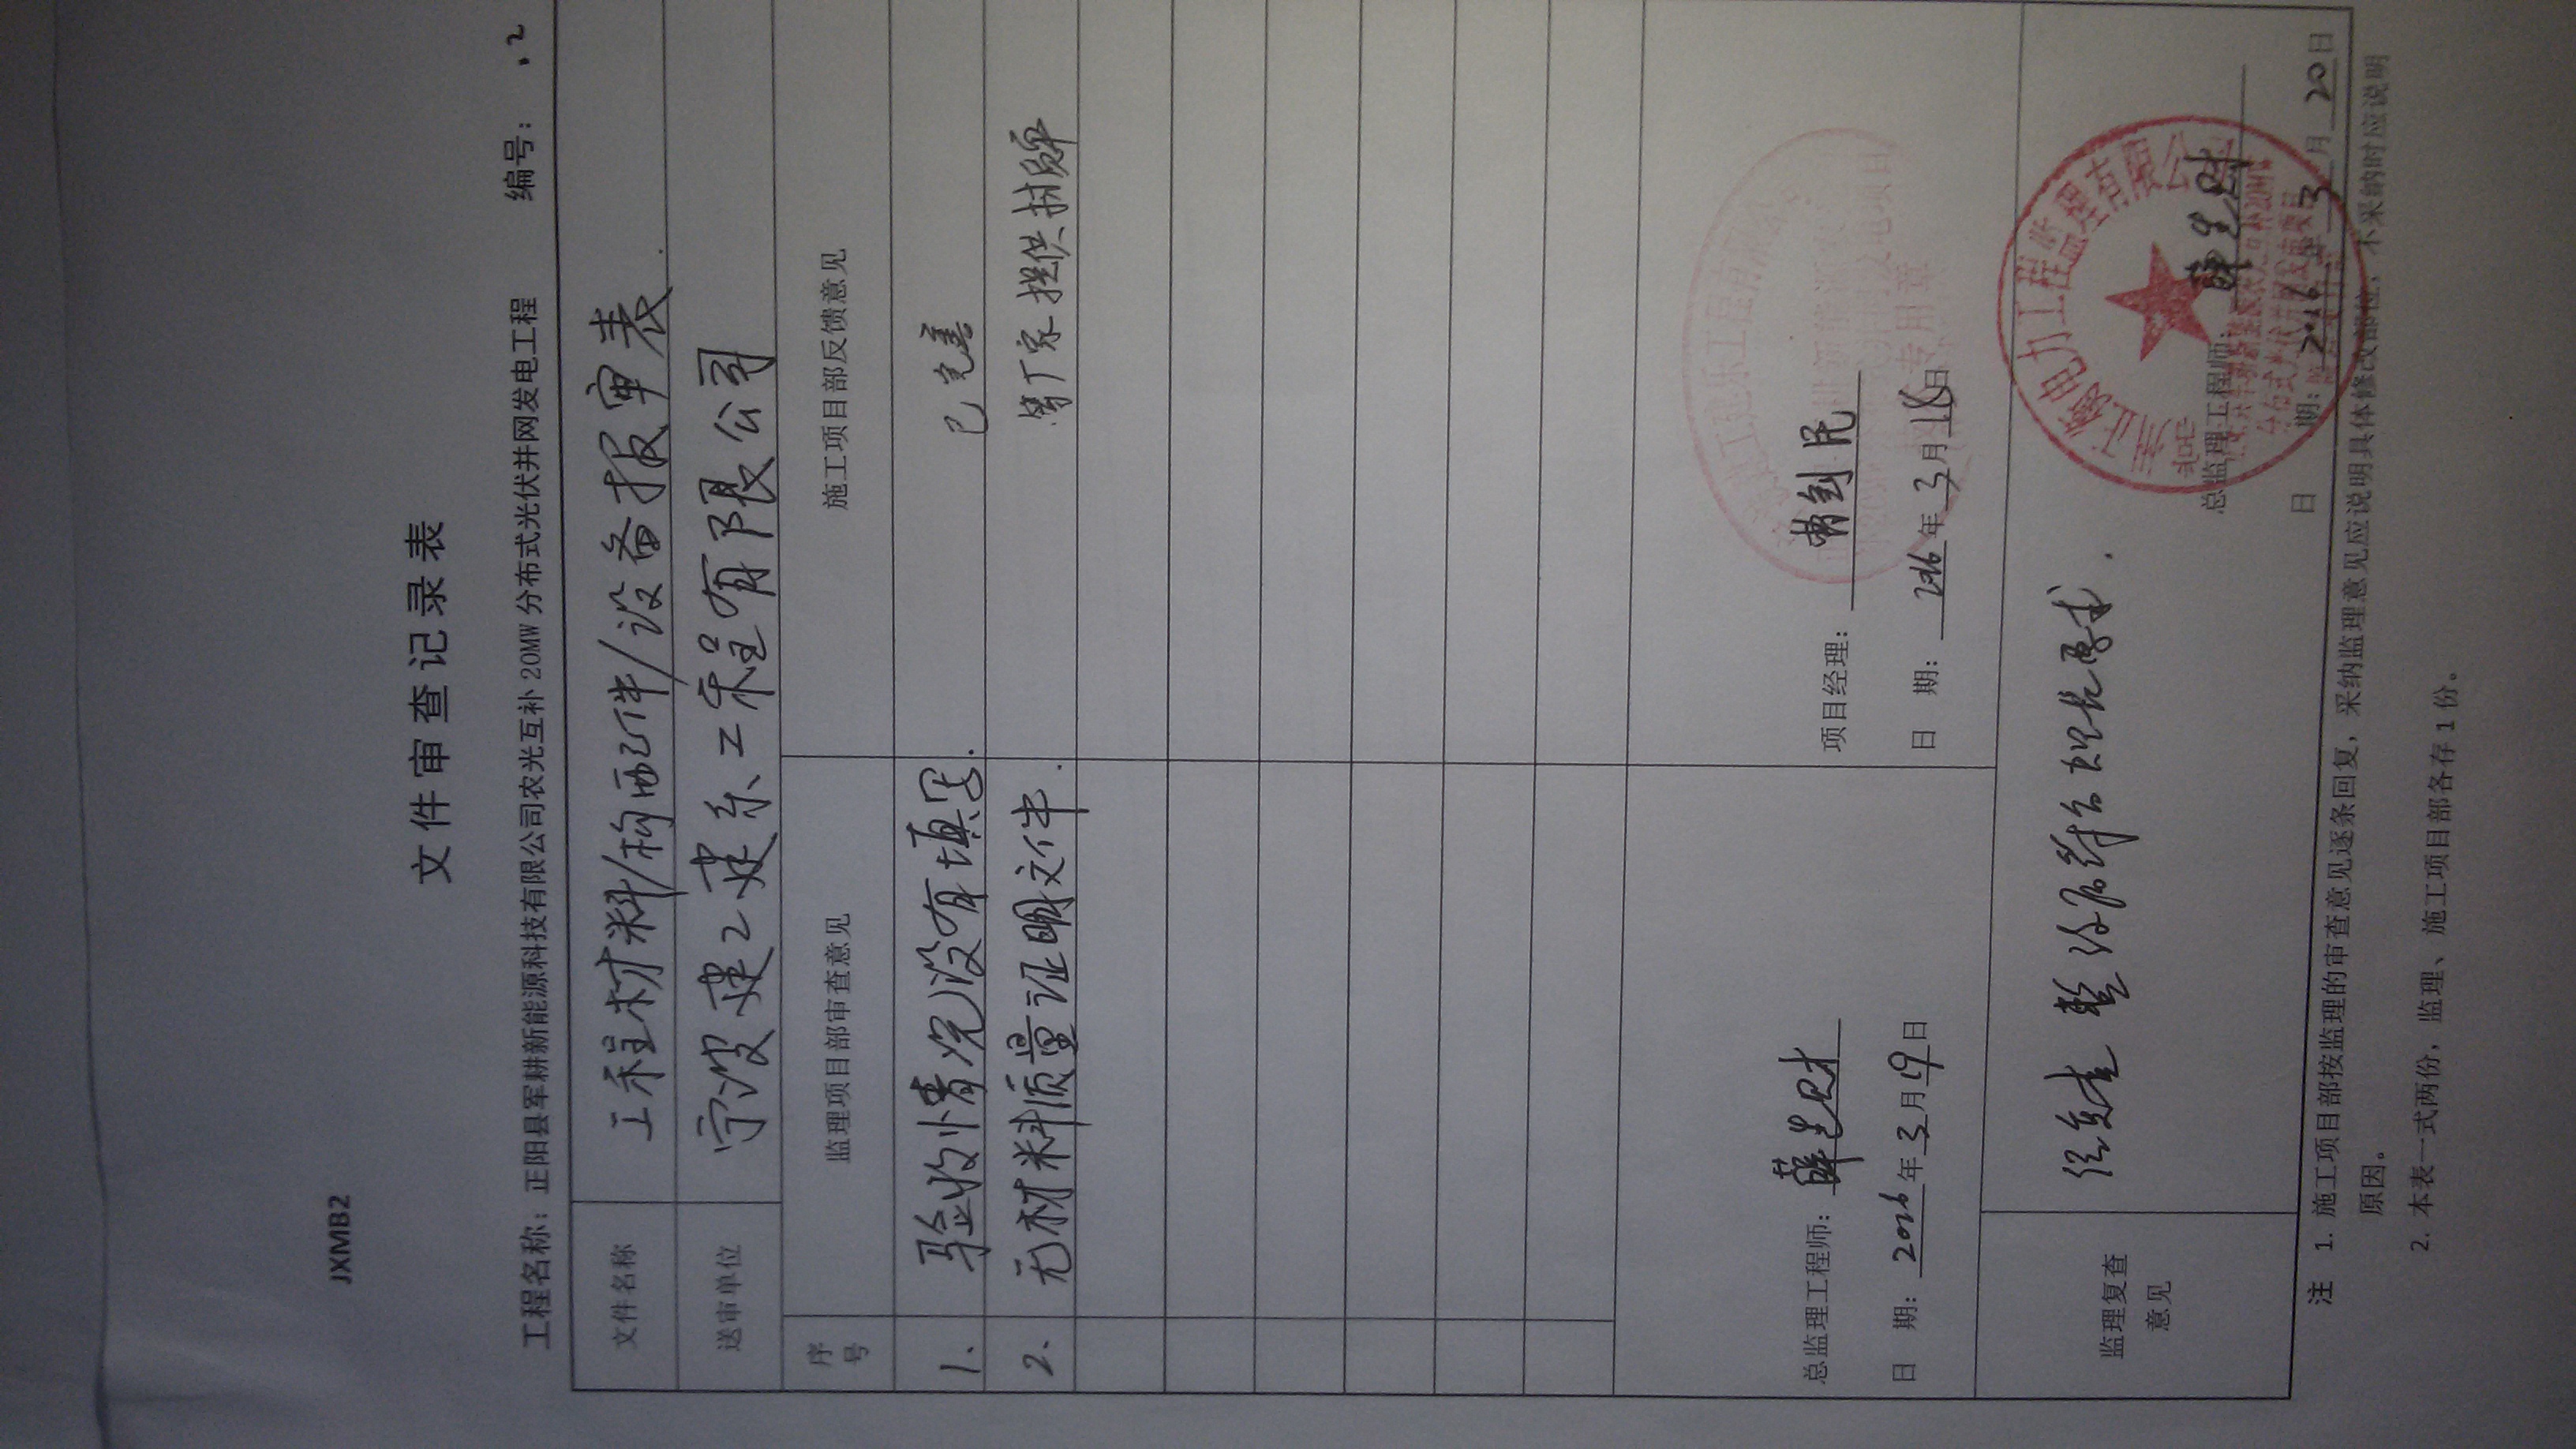 JXMB2
文件审查记录表
工程名称：正阳县军耕新能源科技有限公司农光互补20MW分布式光伏并网发电工程 编号：
文件名称 工程材料/构配件/设备报审表
送审单位 宁波建工建乐工程有限公司
序号 监理项目部审查意见 施工项目部反馈意见
1. 验收情况没有填写. 已完善
2. 无材料质量证明文件. 等厂家提供
总监理工程师：
项目经理：
日 期：2016年3月19日
日 期：2016年3月18日
监理复查意见
经复查 整改后符合 要求.
总监理工程师：
日 期：2016年3月20日
注 1. 施工项目部按监理的审查意见逐条回复，采纳监理意见应说明具体修改部位，不采纳时应说明
原因。
2. 本表一式两份，监理、施工项目部各存1份。